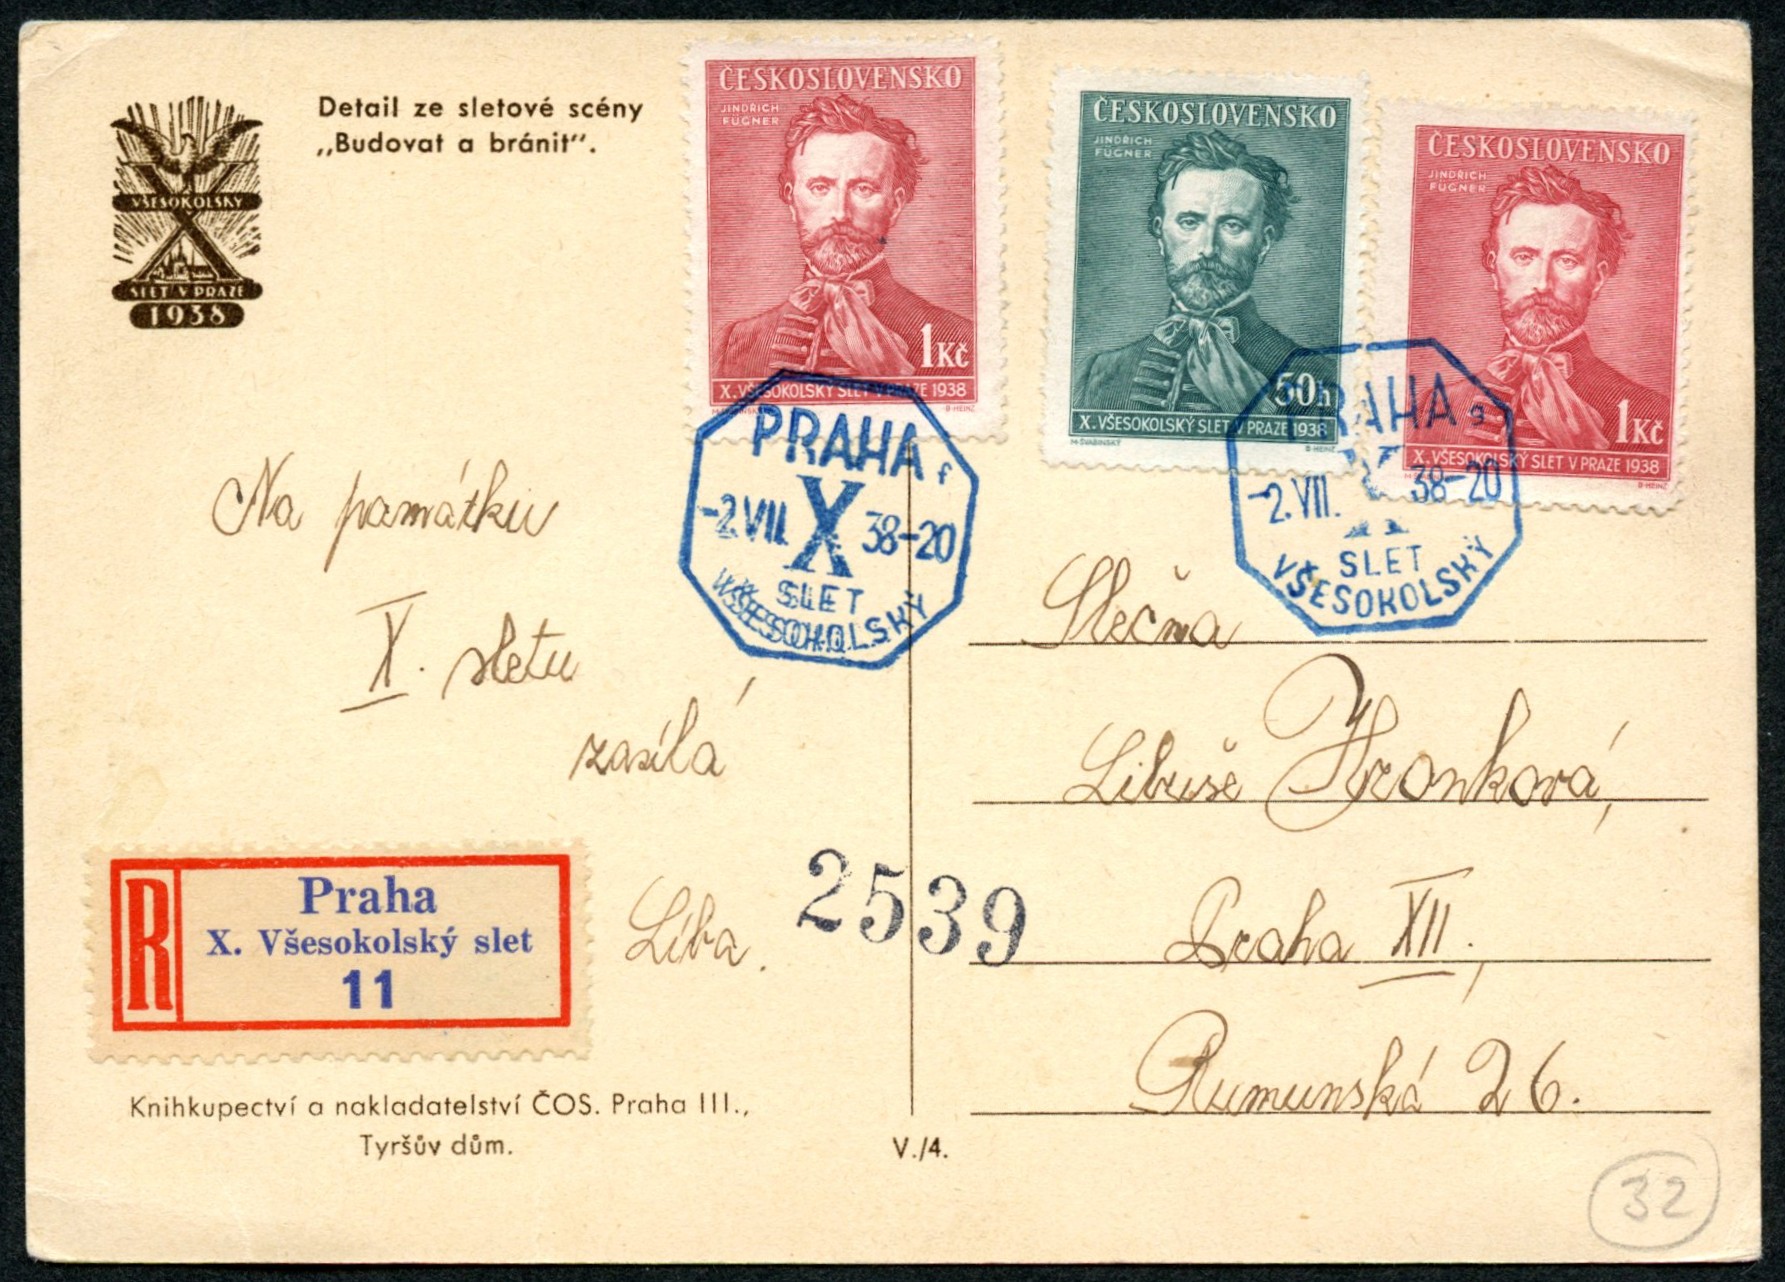 Detail ze sletové scény
„Budovat a bránit“.
VŠESOKOLSKÝ
X
SLET V PRAZE
1938
ČESKOSLOVENSKO
JINDŘICH
FÜGNER
1Kč
X. VŠESOKOLSKÝ SLET V PRAZE 1938
B·HEINZ
ČESKOSLOVENSKO
JINDŘICH
FÜGNER
50h
X. VŠESOKOLSKÝ SLET V PRAZE 1938
M·ŠVABINSKÝ
B·HEINZ
ČESKOSLOVENSKO
JINDŘICH
FÜGNER
1Kč
X. VŠESOKOLSKÝ SLET V PRAZE 1938
B·HEINZ
PRAHA f
-2.VII. X 38-20
SLET
VŠESOKOLSKÝ
PRAHA g
-2.VII. X 38-20
SLET
VŠESOKOLSKÝ
Na památku
X. sletu
zasílá
Líba.
Slečna
Libuše Hronková,
Praha XII.,
Rumunská 26.
2539
R
Praha
X. Všesokolský slet
11
Knihkupectví a nakladatelství ČOS. Praha III.,
Tyršův dům.
V./4.
32